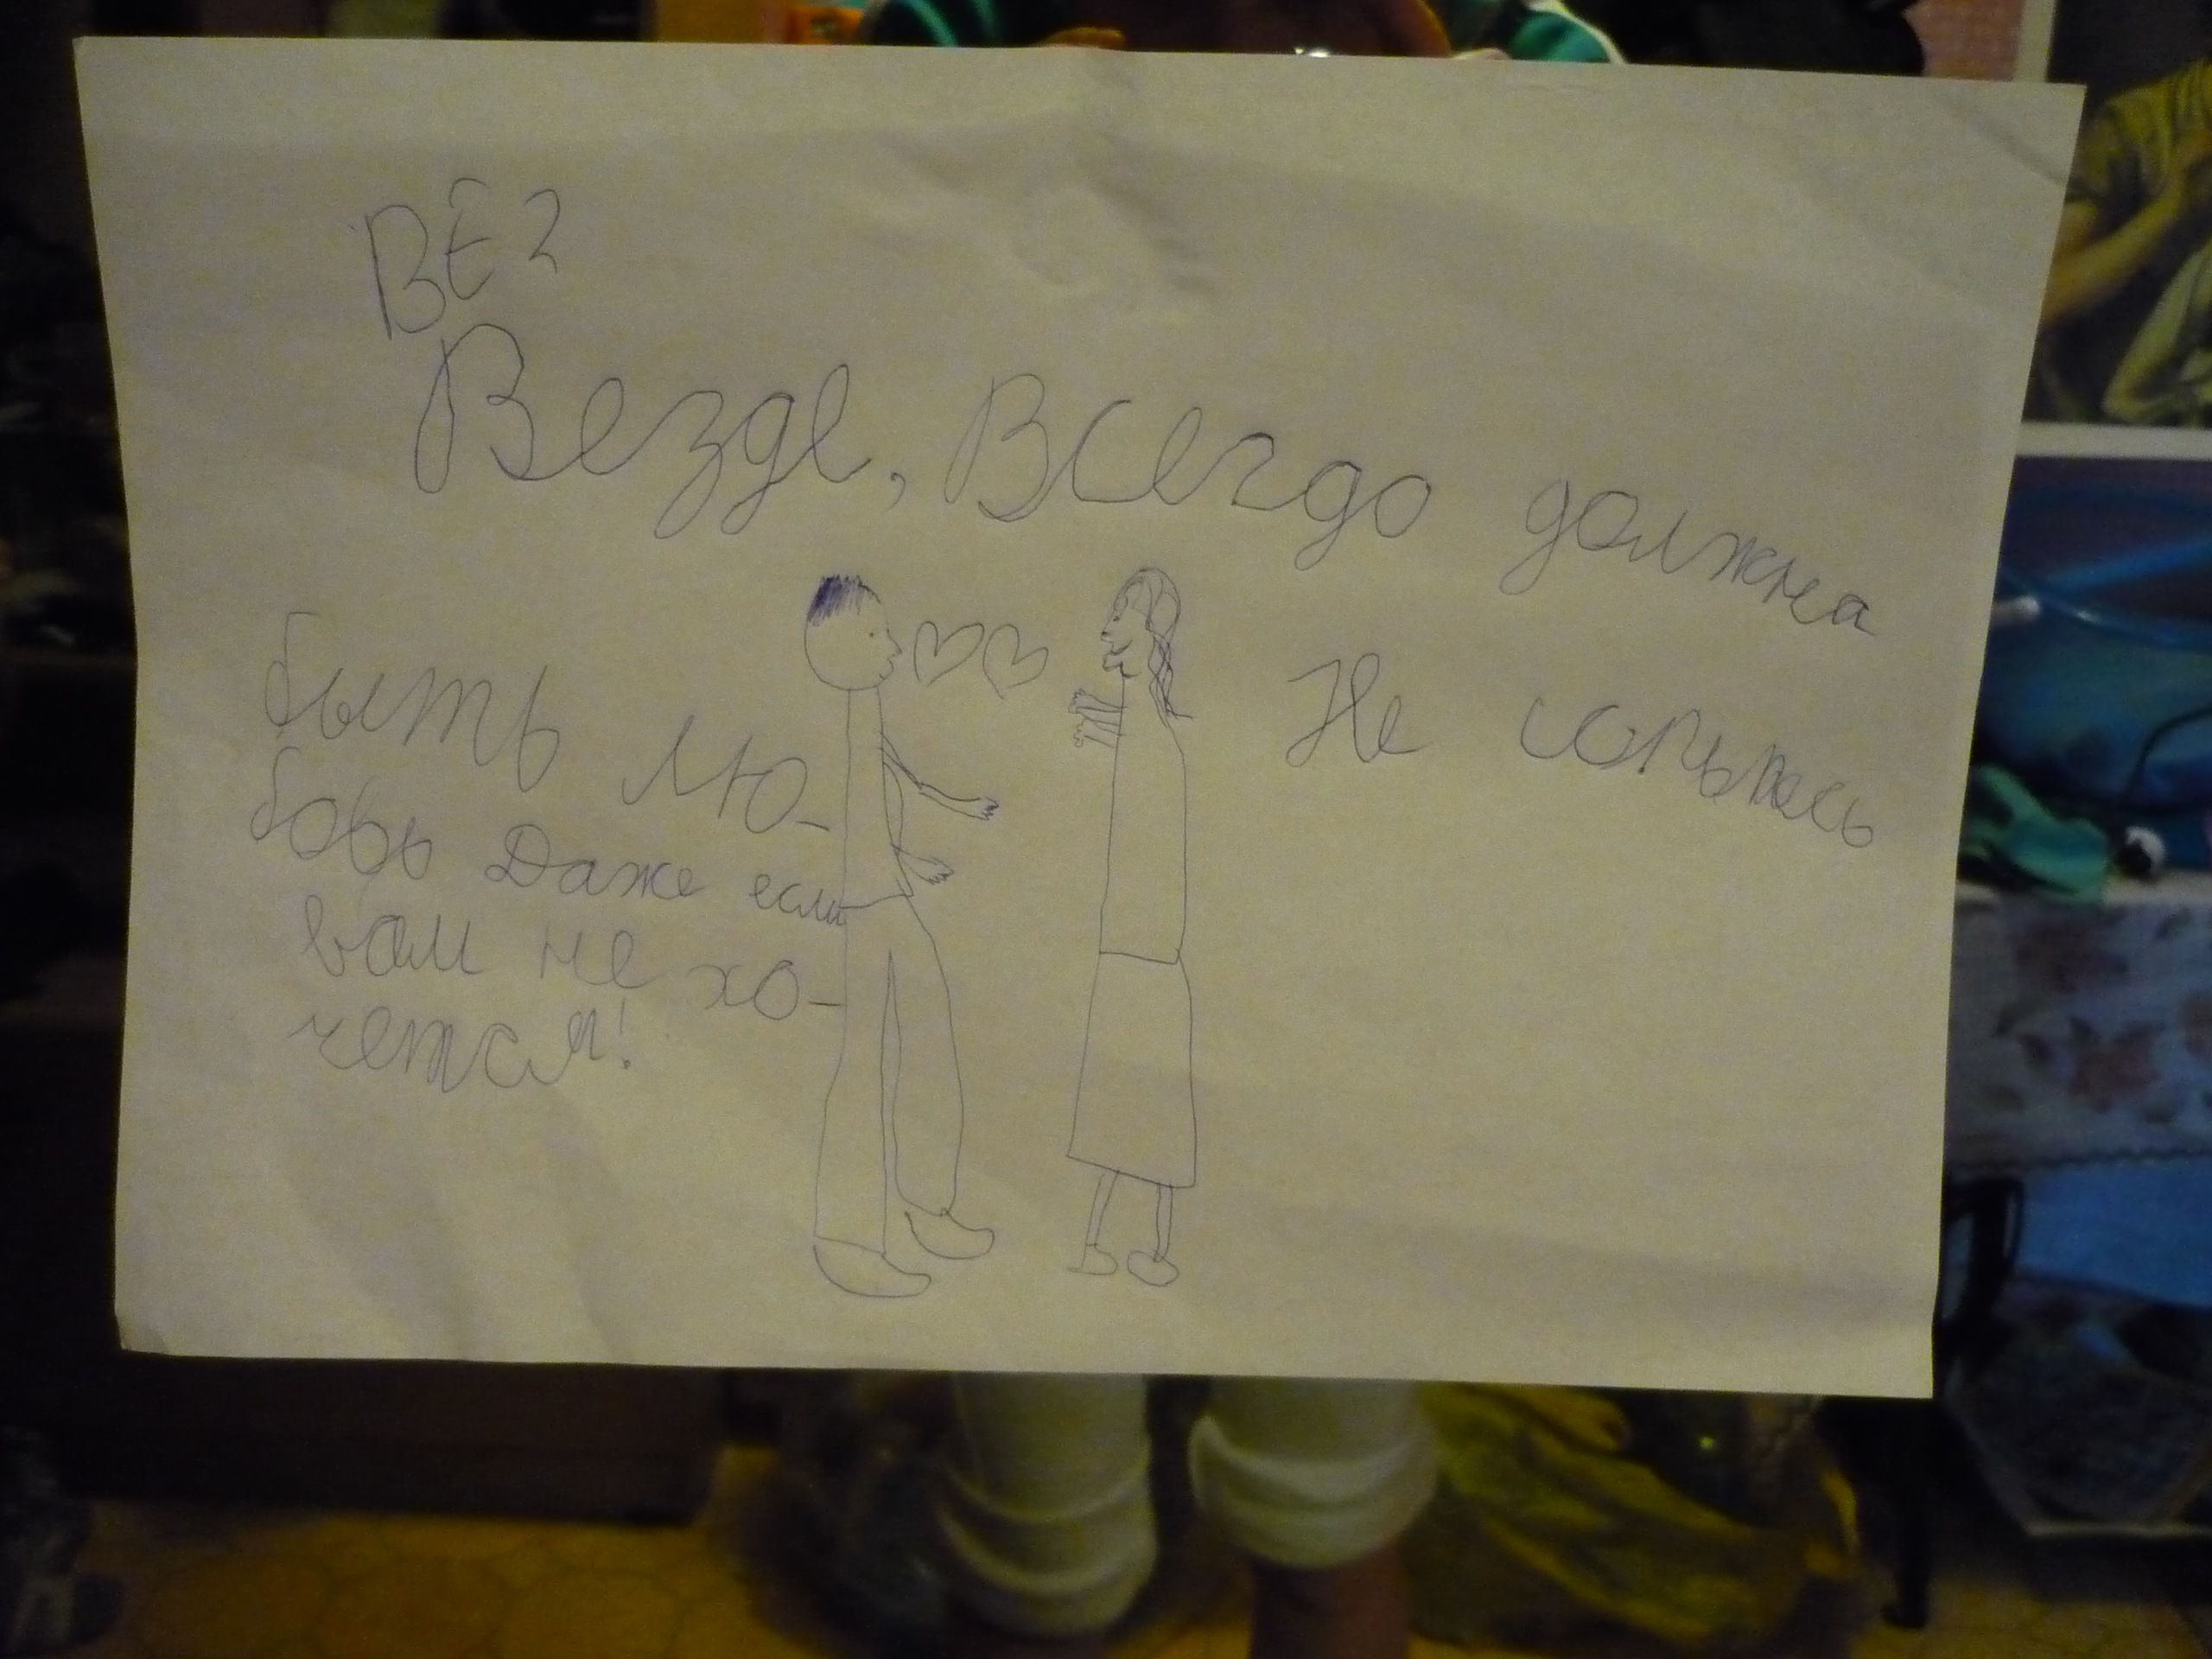 ВЕ2
Везде, Всегдо должна
быть лю-
бовь Даже если
вам не хо-
четься!
Не